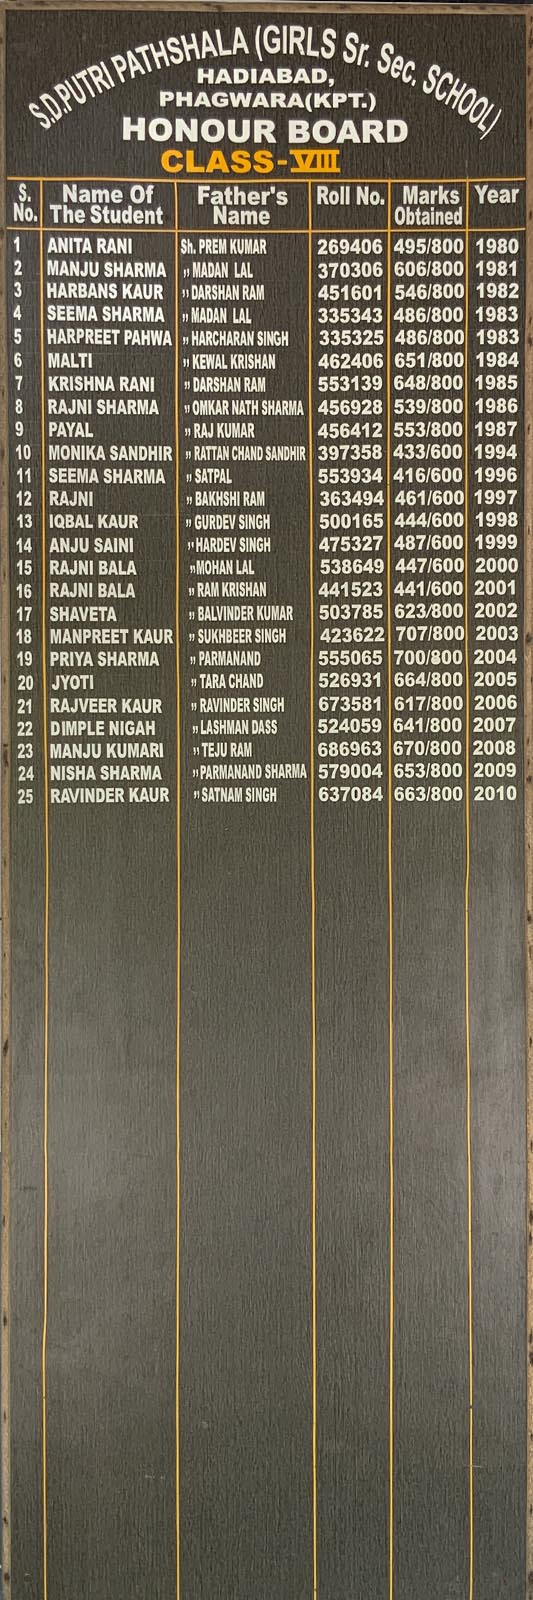 S.D.PUTRI PATHSHALA (GIRLS Sr. Sec. SCHOOL)
HADIABAD,
PHAGWARA(KPT.)
HONOUR BOARD
CLASS-VIII
S. No. Name Of The Student Father's Name Roll No. Marks Obtained Year
1 ANITA RANI Sh. PREM KUMAR 269406 495/800 1980
2 MANJU SHARMA ,, MADAN LAL 370306 606/800 1981
3 HARBANS KAUR ,, DARSHAN RAM 451601 546/800 1982
4 SEEMA SHARMA ,, MADAN LAL 335343 486/800 1983
5 HARPREET PAHWA ,, HARCHARAN SINGH 335325 486/800 1983
6 MALTI ,, KEWAL KRISHAN 462406 651/800 1984
7 KRISHNA RANI ,, DARSHAN RAM 553139 648/800 1985
8 RAJNI SHARMA ,, OMKAR NATH SHARMA 456928 539/800 1986
9 PAYAL ,, RAJ KUMAR 456412 553/800 1987
10 MONIKA SANDHIR ,, RATTAN CHAND SANDHIR 397358 433/600 1994
11 SEEMA SHARMA ,, SATPAL 553934 416/600 1996
12 RAJNI ,, BAKHSHI RAM 363494 461/600 1997
13 IQBAL KAUR ,, GURDEV SINGH 500165 444/600 1998
14 ANJU SAINI ,, HARDEV SINGH 475327 487/600 1999
15 RAJNI BALA ,, MOHAN LAL 538649 447/600 2000
16 RAJNI BALA ,, RAM KRISHAN 441523 441/600 2001
17 SHAVETA ,, BALVINDER KUMAR 503785 623/800 2002
18 MANPREET KAUR ,, SUKHBEER SINGH 423622 707/800 2003
19 PRIYA SHARMA ,, PARMANAND 555065 700/800 2004
20 JYOTI ,, TARA CHAND 526931 664/800 2005
21 RAJVEER KAUR ,, RAVINDER SINGH 673581 617/800 2006
22 DIMPLE NIGAH ,, LASHMAN DASS 524059 641/800 2007
23 MANJU KUMARI ,, TEJU RAM 686963 670/800 2008
24 NISHA SHARMA ,, PARMANAND SHARMA 579004 653/800 2009
25 RAVINDER KAUR ,, SATNAM SINGH 637084 663/800 2010